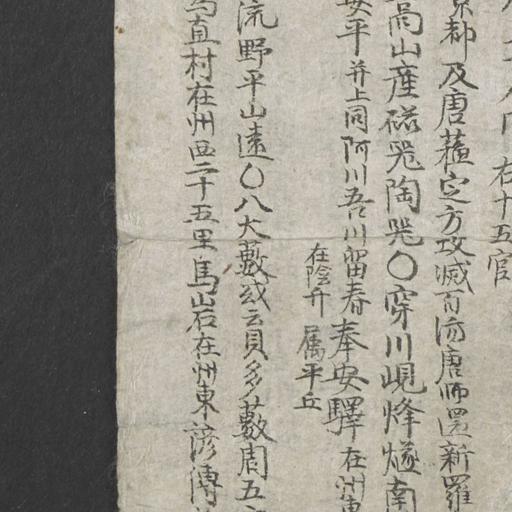 右十五官
京都及唐蘓定方攻滅百済唐师還新羅
高山産磁咒陶咒〇穿川峴烽燧南
安平并上同阿川吾川留春奉安驛在州東
在陰升属平丘
流野平山遠〇八大藪或云貝多藪周五
馬直村在州西二十五里馬山石在州東諺傳